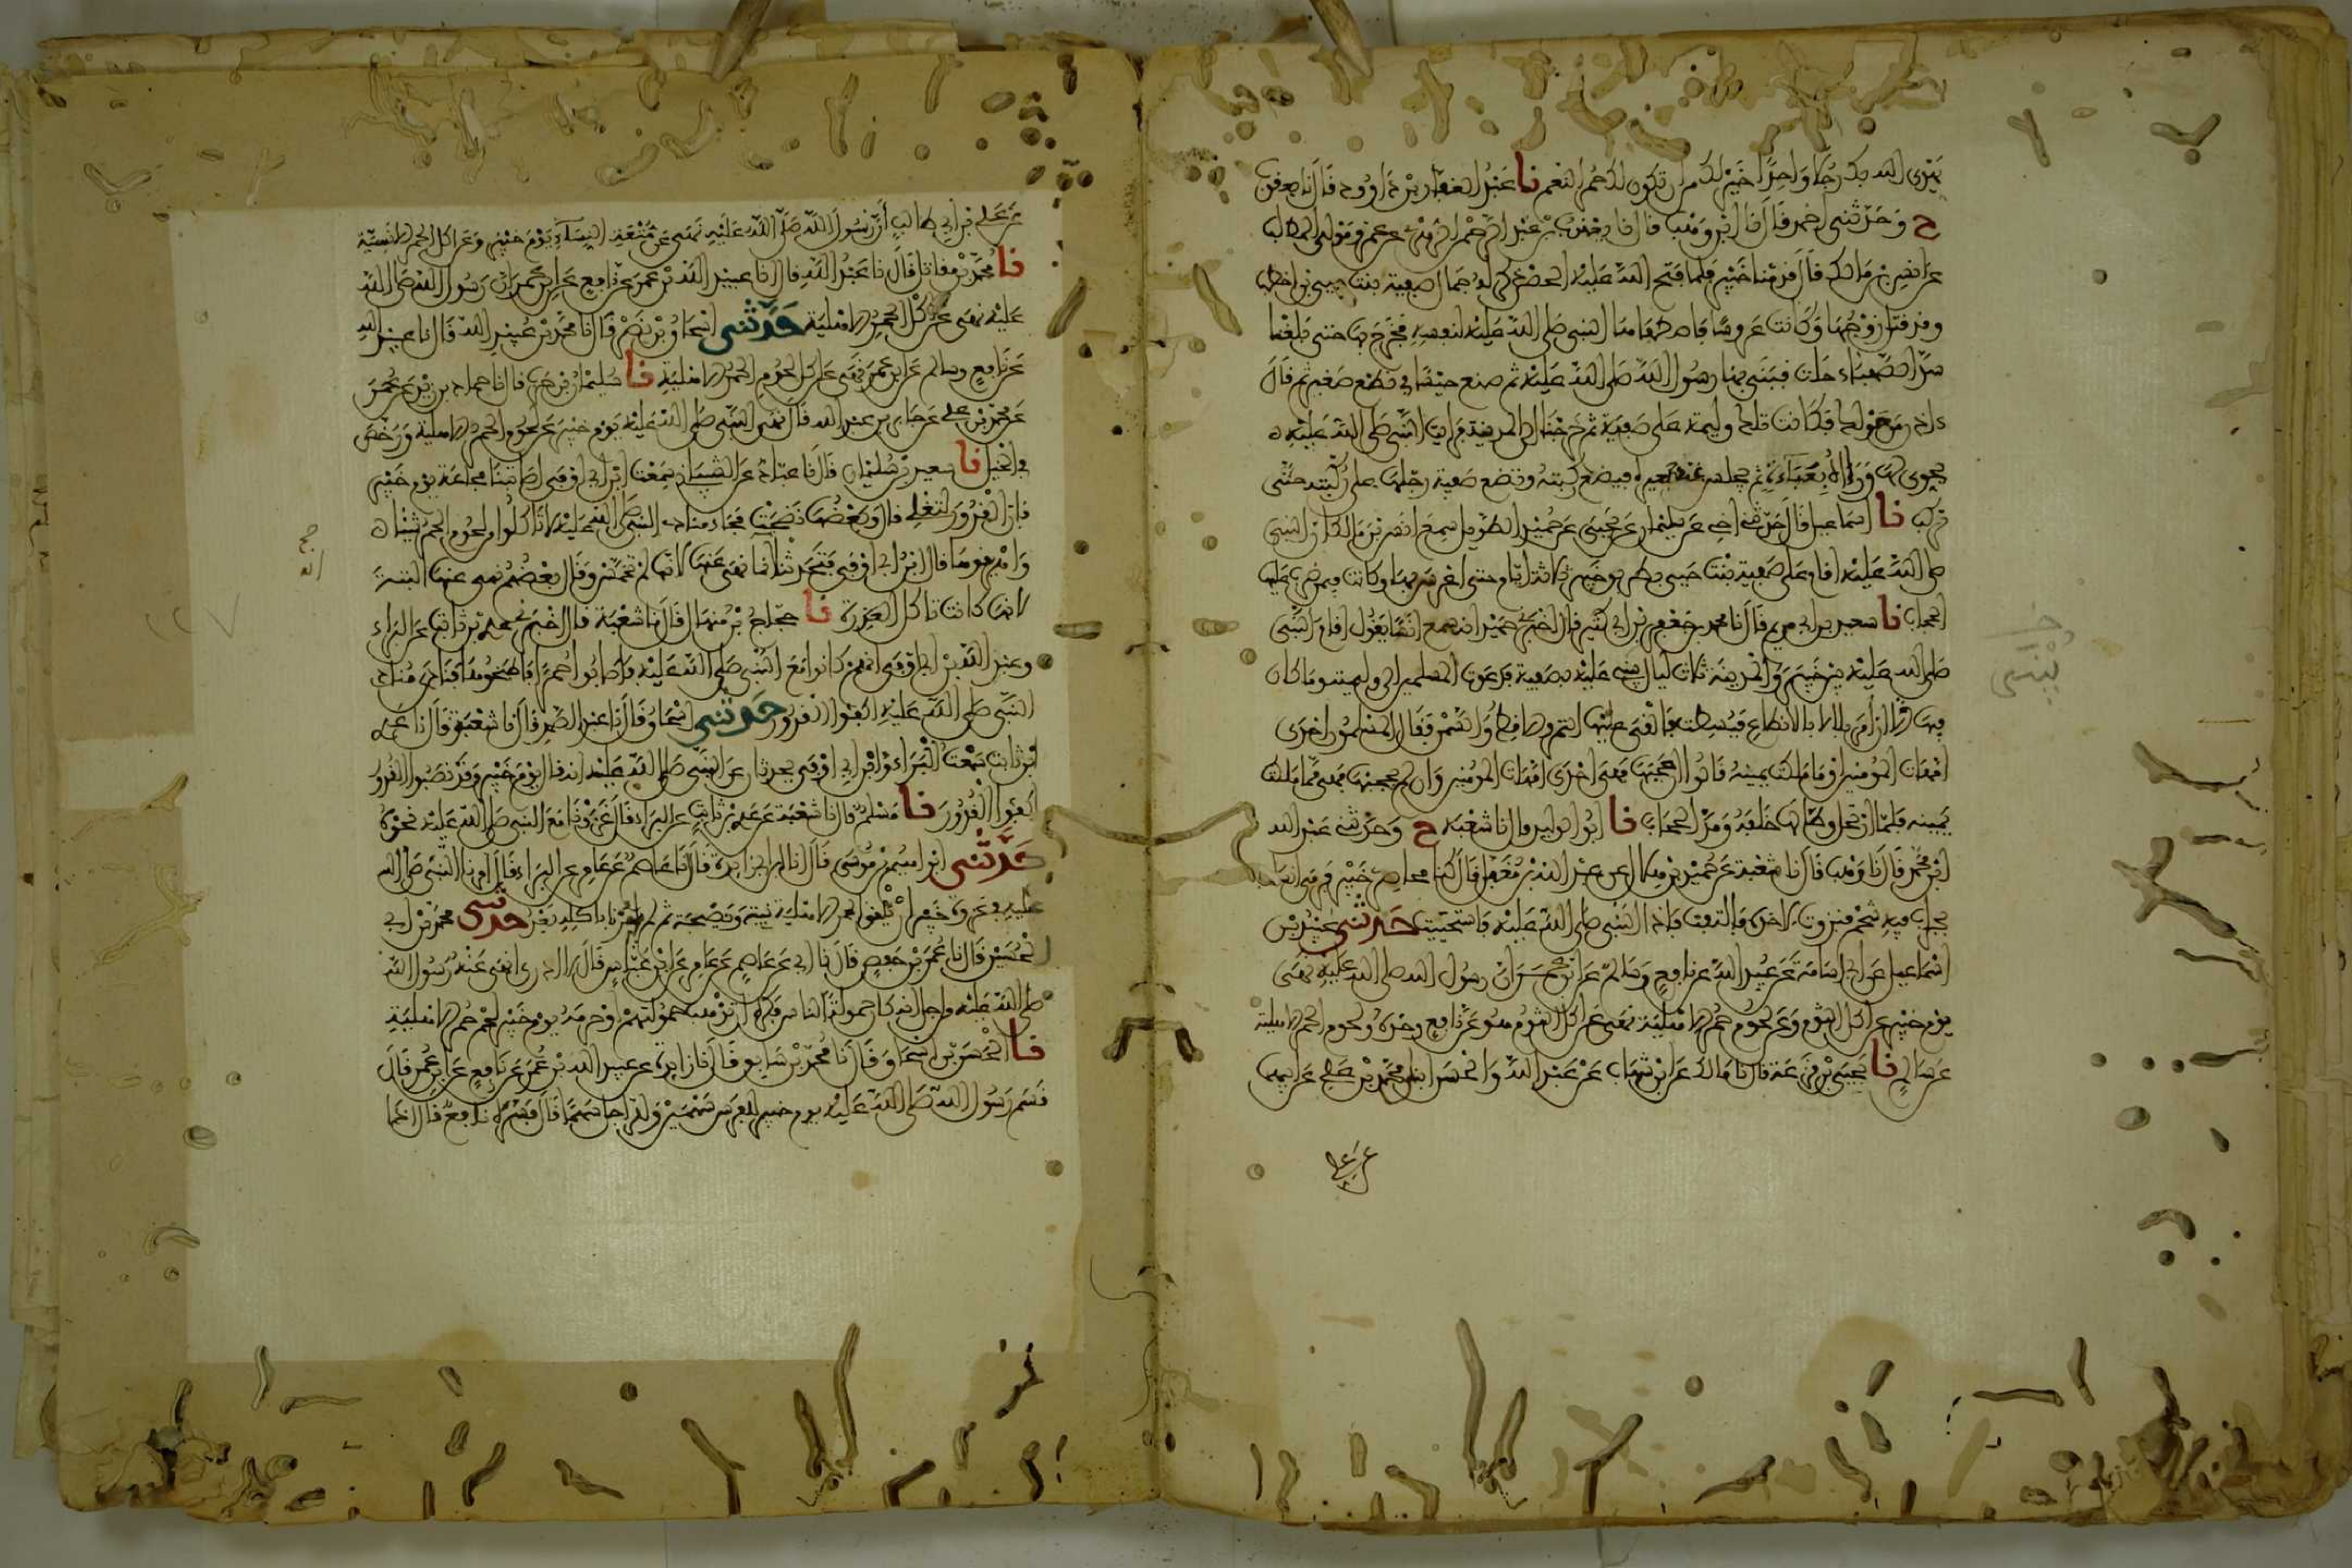 يهدى الله بك رجلا واحدا خير لك من ان تكون لك حمر النعم نا عبد الغفار بن داوود قال نا يعقوب
ح وحدثني احمد قال نا ابن وهب قال نا يعقوب بن عبد الرحمن الزهري عن عمرو مولى المطلب
عن انس بن مالك قال قدمنا خيبر فلما فتح الله عليه الحصن ذكر له جمال صفية بنت حيي بن اخطب
وقد قتل زوجها وكانت عروسا فاصطفاها النبي صلى الله عليه لنفسه فخرج بها حتى بلغنا
سد الصهباء حلت فبنى بها رسول الله صلى الله عليه ثم صنع حيسا في نطع صغير ثم قال
ءاذن من حولك فكانت تلك وليمة على صفية ثم خرجنا الى المدينة فرايت النبي صلى الله عليه
يحوي لها وراءه بعباءة ثم يجلس عند بعيره فيضع ركبته وتضع صفية رجلها على ركبته حتى
تركب نا اسماعيل قال حدثني اخي عن سليمان عن يحيى عن حميد الطويل سمع انس بن مالك ان النبي
صلى الله عليه اقام على صفية بنت حيي بطريق خيبر ثلاثة ايام حتى اعرس بها وكانت فيمن ضرب عليها
الحجاب نا سعيد بن ابي مريم قال نا محمد بن جعفر بن ابي كثير قال اخبرني حميد انه سمع انسا يقول اقام النبي
صلى الله عليه بين خيبر والمدينة ثلاث ليال يبنى عليه بصفية فدعوت المسلمين الى وليمته وما كان
فيها الا ان امر بلالا بالانطاع فبسطت فالقى عليها التمر والاقط والسمن فقال المسلمون احدى
امهات المومنين او ما ملكت يمينه قالوا ان حجبها فهي احدى امهات المومنين وان لم يحجبها فهي مما ملكت
يمينه فلما ارتحل وطا لها خلفه ومد الحجاب نا ابو الوليد قال نا شعبة ح وحدثني عبد الله
ابن محمد قال نا وهب قال نا شعبة عن حميد بن هلال عن عبد الله بن مغفل قال كنا محاصري خيبر فرمى انسان
بجراب فيه شحم فنزوت لاخذه فالتفت فاذا النبي صلى الله عليه فاستحييت حدثني عبيد بن
اسماعيل عن ابي اسامة عن عبيد الله عن نافع وسالم عن ابن عمر ان رسول الله صلى الله عليه نهى
يوم خيبر عن اكل الثوم وعن لحوم حمر الاهلية نهى عن اكل الثوم هو عن نافع وحده ولحوم الحمر الاهلية
عن سالم نا يحيى بن قزعة قال نا مالك عن ابن شهاب عن عبد الله والحسن ابني محمد بن علي عن ابيهما
عن علي
عن علي بن ابي طالب ان رسول الله صلى الله عليه نهى عن متعة النساء يوم خيبر وعن اكل الحمر الانسية
نا محمد بن مقاتل قال نا عبد الله قال نا عبيد الله بن عمر عن نافع عن ابن عمر ان رسول الله صلى الله
عليه نهى عن اكل الحمر الاهلية حدثني اسحاق بن نصر قال نا محمد بن عبيد الله قال نا عبيد الله
عن نافع وسالم عن ابن عمر نهى عن اكل لحوم الحمر الاهلية نا سليمان بن حرب قال نا حماد بن زيد عن عمرو
عن محمد بن علي عن جابر بن عبد الله قال نهى النبي صلى الله عليه يوم خيبر عن لحوم الحمر الاهلية ورخص
في الخيل نا سعيد بن سليمان قال نا عباد عن الشيباني سمعت ابن ابي اوفى اصابتنا مجاعة يوم خيبر
فان القدور لتغلي قال وبعضها نضجت فجاء منادي النبي صلى الله عليه لا تاكلوا من لحوم الحمر شيئا
واهريقوها قال ابن ابي اوفى فتحدثنا انه انما نهى عنها لانها لم تخمس وقال بعضهم نهى عنها البتة
لانها كانت تاكل العذرة نا حجاج بن منهال قال نا شعبة قال اخبرني عدي بن ثابت عن البراء
وعبد الله بن ابي اوفى انهم كانوا مع النبي صلى الله عليه فاصابوا حمرا فاطبخوها فنادى منادي
النبي صلى الله عليه اكفوا القدور حدثني اسحاق قال نا عبد الصمد قال نا شعبة قال نا عدي
ابن ثابت سمعت البراء وابن ابي اوفى يحدثان عن النبي صلى الله عليه انه قال يوم خيبر وقد نصبوا القدور
اكفوا القدور نا مسلم قال نا شعبة عن عدي بن ثابت عن البراء قال غزونا مع النبي صلى الله عليه نحوه
حدثني ابراهيم بن موسى قال انا ابن ابي زايدة قال نا عاصم عن عامر عن البراء قال امرنا النبي صلى الله
عليه في غزوة خيبر ان نلقي الحمر الاهلية نيئة ونضيجة ثم لم يامرنا باكله بعد حدثني محمد بن ابي
الحسين قال نا عمر بن حفص قال نا ابي عن عاصم عن عامر عن ابن عباس قال لا ادري انهى عنه رسول الله
صلى الله عليه من اجل انه كان حمولة الناس فكره ان تذهب حمولتهم او حرمه يوم خيبر لحم حمر الاهلية
نا الحسن بن اسحاق قال نا محمد بن سابق قال نا زايدة عن عبيد الله بن عمر عن نافع عن ابن عمر قال
قسم رسول الله صلى الله عليه يوم خيبر للفرس سهمين وللراجل سهما قال فسره نافع قال اذا